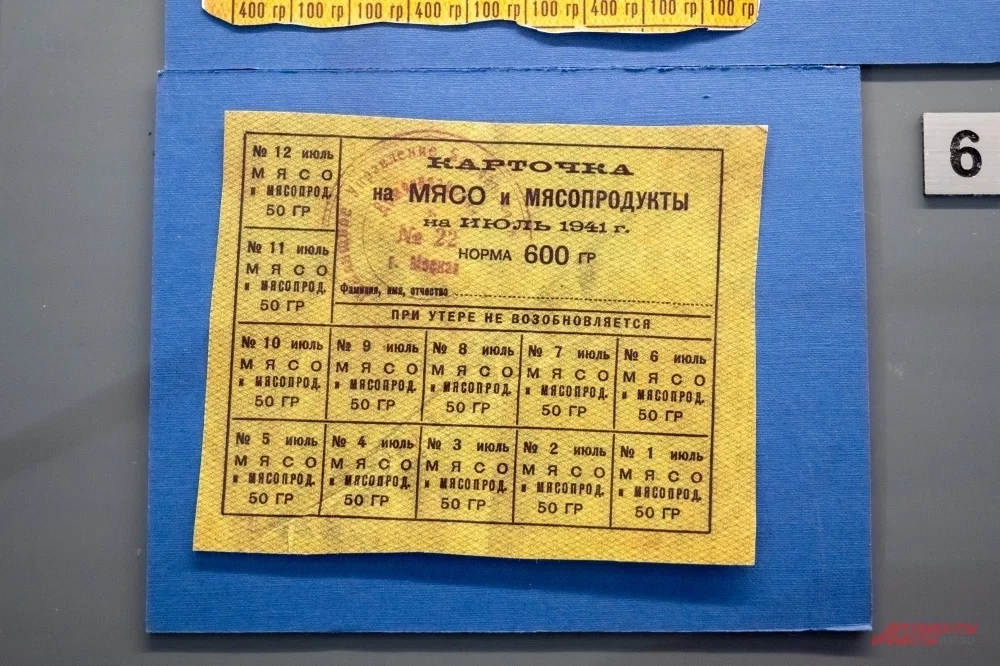 400 гр 100 гр 100 гр 400 гр 100 гр 100 гр 400 гр 100 гр 100 гр
6
КАРТОЧКА
на МЯСО и МЯСОПРОДУКТЫ
на ИЮЛЬ 1941 г.
НОРМА 600 ГР
Фамилия, имя, отчество
ПРИ УТЕРЕ НЕ ВОЗОБНОВЛЯЕТСЯ
управление
№ 22
г. Москва
№ 12 июль
МЯСО
и МЯСОПРОД.
50 ГР
№ 11 июль
МЯСО
и МЯСОПРОД.
50 ГР
№ 10 июль
МЯСО
и МЯСОПРОД.
50 ГР
№ 9 июль
МЯСО
и МЯСОПРОД.
50 ГР
№ 8 июль
МЯСО
и МЯСОПРОД.
50 ГР
№ 7 июль
МЯСО
и МЯСОПРОД.
50 ГР
№ 6 июль
МЯСО
и МЯСОПРОД.
50 ГР
№ 5 июль
МЯСО
и МЯСОПРОД.
50 ГР
№ 4 июль
МЯСО
и МЯСОПРОД.
50 ГР
№ 3 июль
МЯСО
и МЯСОПРОД.
50 ГР
№ 2 июль
МЯСО
и МЯСОПРОД.
50 ГР
№ 1 июль
МЯСО
и МЯСОПРОД.
50 ГР